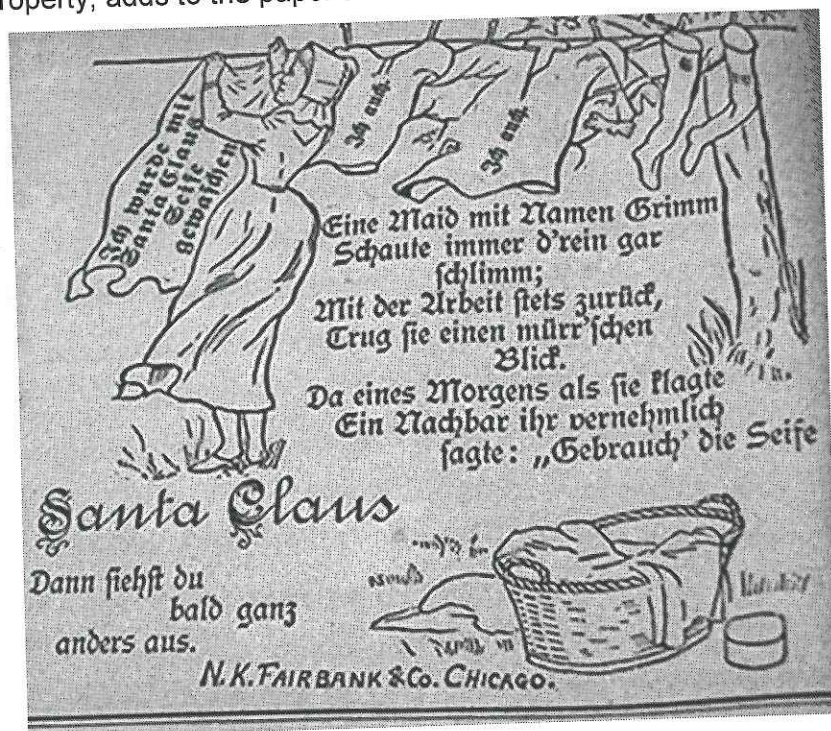 roperty, adds to the paper
Ich wurde mit
Santa Claus
Seife
gewaschen
Ich auch.
Ich auch.
Eine Maid mit Namen Grimm
Schaute immer d'rein gar
schlimm;
Mit der Arbeit stets zurück,
Trug sie einen mürr'schen
Blick.
Da eines Morgens als sie klagte
Ein Nachbar ihr vernehmlich
sagte: „Gebrauch' die Seife
Santa Claus
Dann siehst du
bald ganz
anders aus.
N.K. FAIRBANK & CO. CHICAGO.